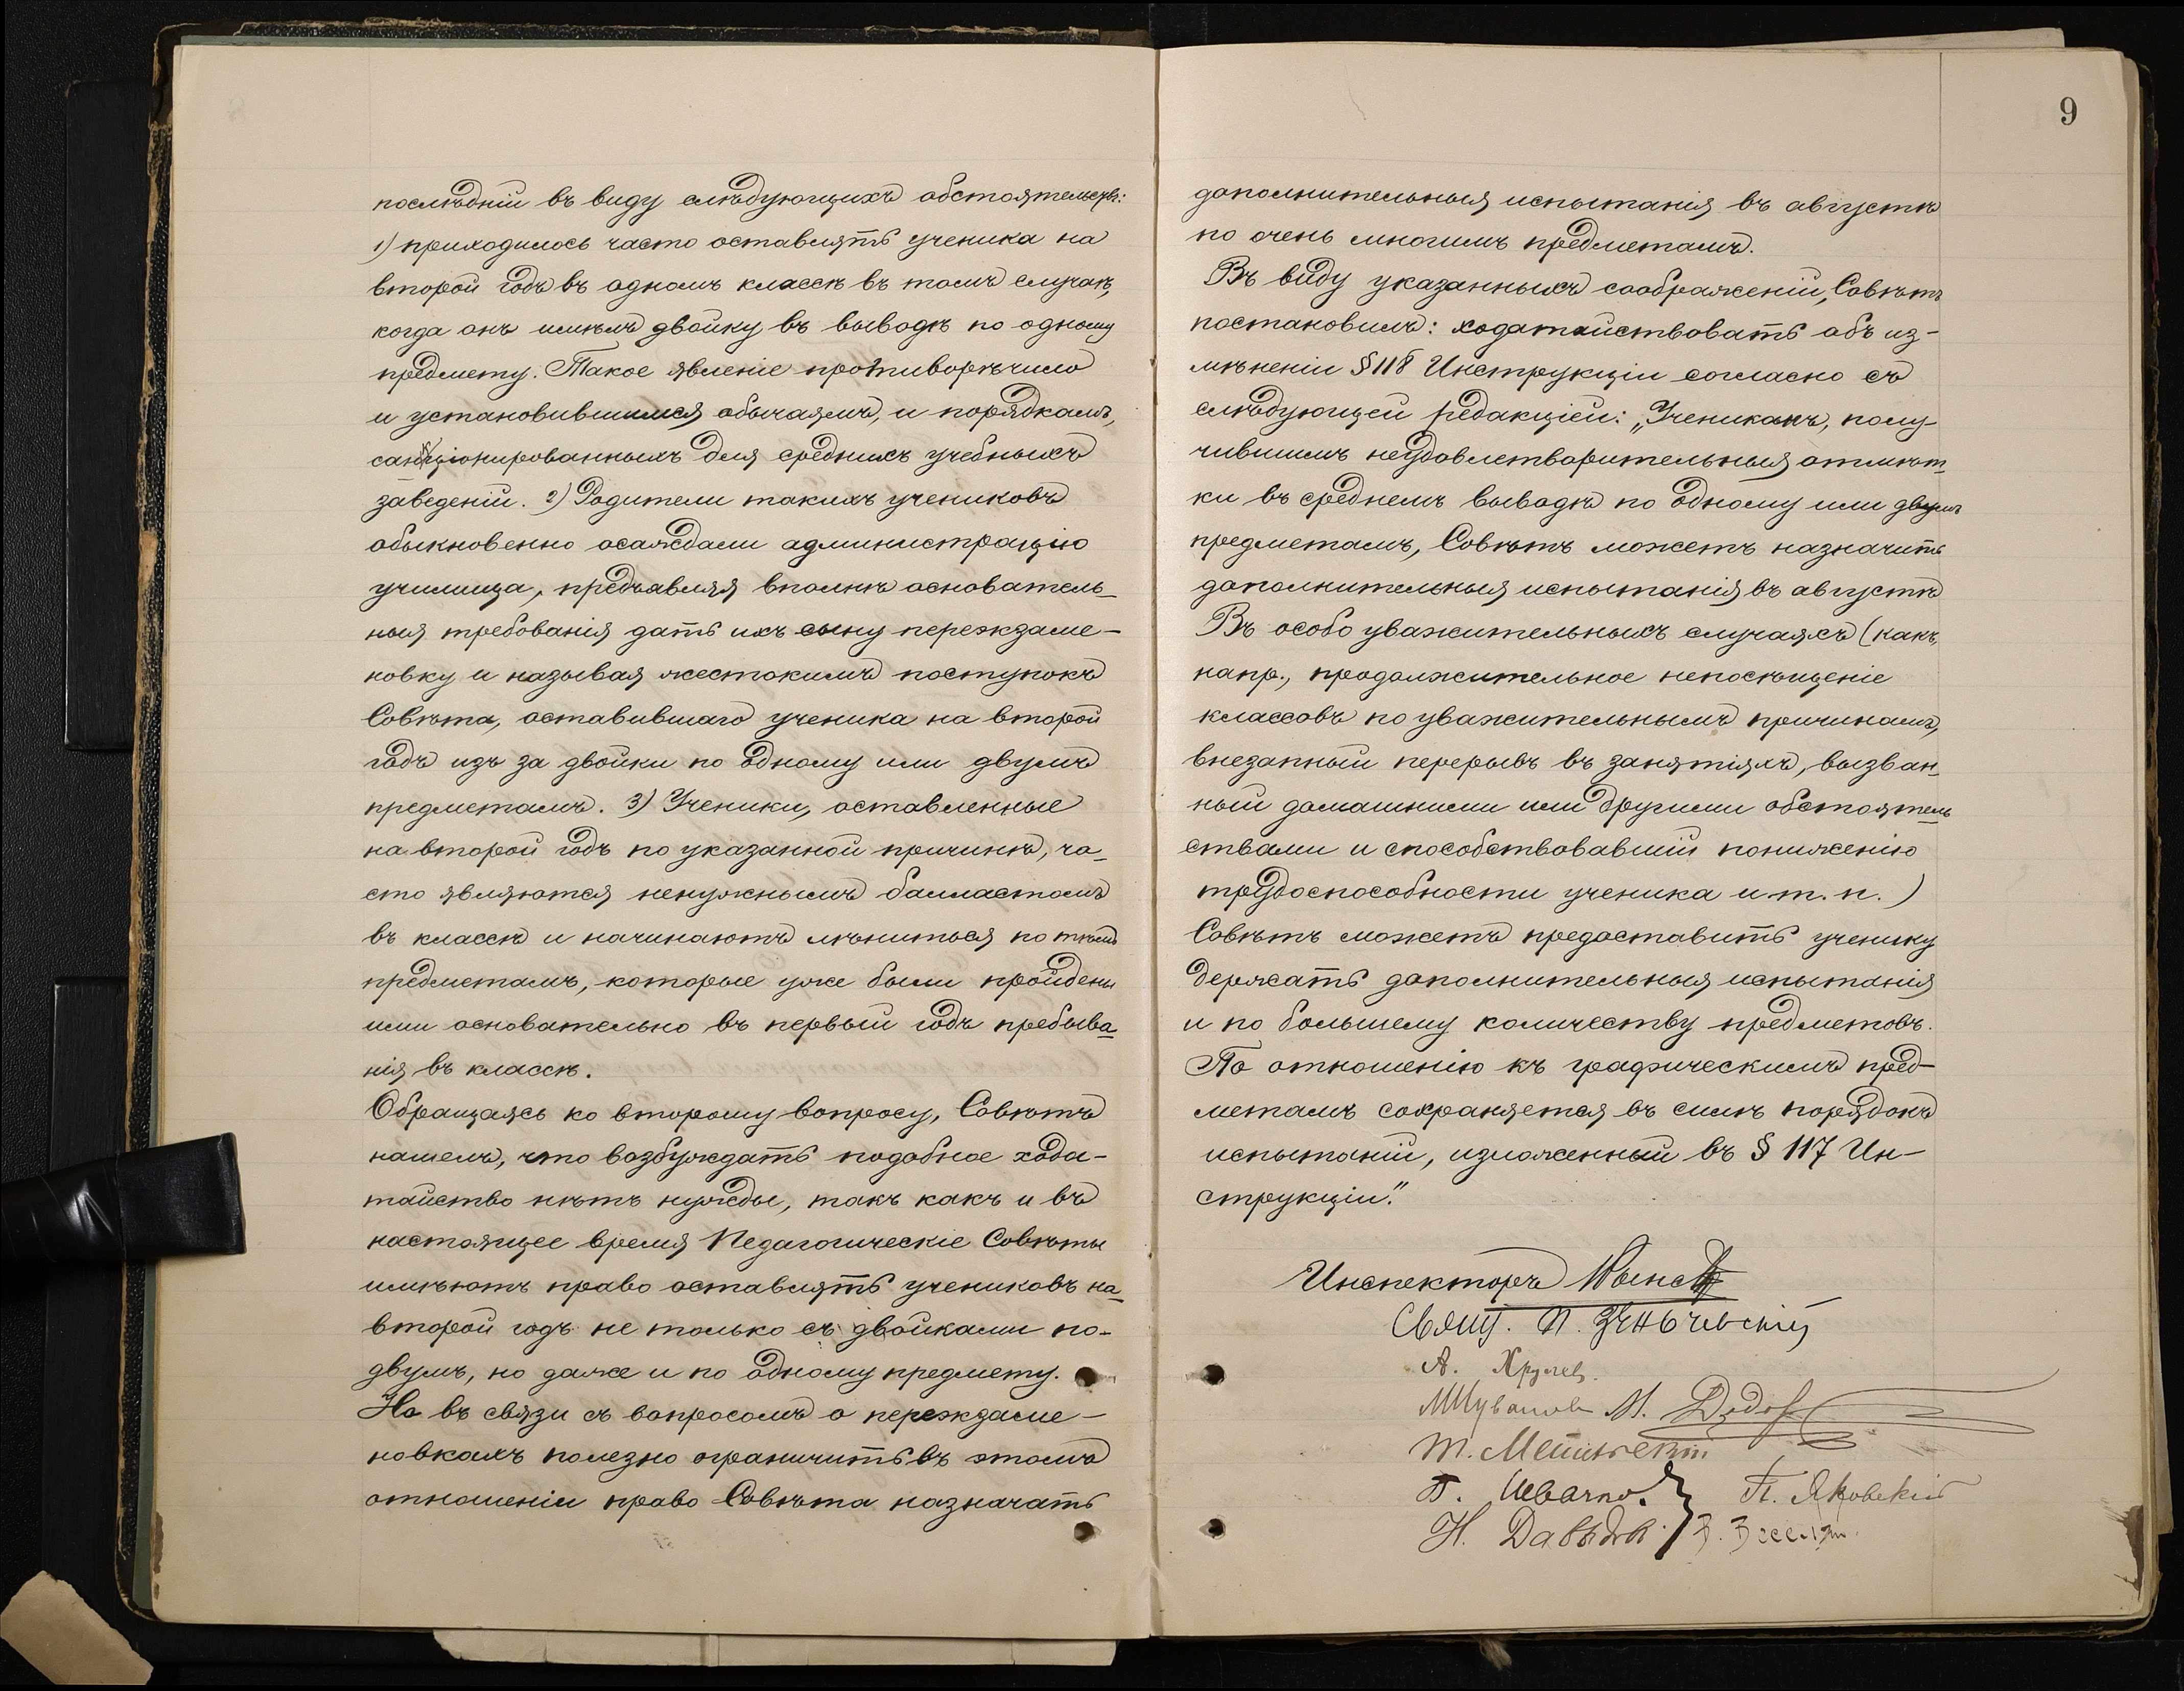 послѣдній въ виду слѣдующихъ обстоятельствъ:
1) приходилось часто оставлять ученика на
второй годъ въ одномъ классѣ въ томъ случаѣ,
когда онъ имѣлъ двойку въ выводѣ по одному
предмету. Такое явленіе противорѣчило
и установившимся обычаямъ, и порядкамъ,
санкціонированнымъ для среднихъ учебныхъ
заведеній. 2) Родители такихъ учениковъ
обыкновенно осаждали администрацію
училища, предъявляя вполнѣ основатель-
ныя требованія дать ихъ сыну переэкзаме-
новку и называя жестокимъ поступокъ
Совѣта, оставившаго ученика на второй
годъ изъ за двойки по одному или двумъ
предметамъ. 3) Ученики, оставленные
на второй годъ по указанной причинѣ, ча-
сто являются ненужнымъ балластомъ
въ классѣ и начинаютъ лѣниться по тѣмъ
предметамъ, которые уже были пройдены
ими основательно въ первый годъ пребыва-
нія въ классѣ.
Обращаясь ко второму вопросу, Совѣтъ
нашелъ, что возбуждать подобное хода-
тайство нѣтъ нужды, такъ какъ и въ
настоящее время Педагогическіе Совѣты
имѣютъ право оставлять учениковъ на
второй годъ не только съ двойками по
двумъ, но даже и по одному предмету.
Но въ связи съ вопросомъ о переэкзаме-
новкахъ полезно ограничить въ этомъ
отношеніи право Совѣта назначать
9
дополнительныя испытанія въ августѣ
по очень многимъ предметамъ.
Въ виду указанныхъ соображеній, Совѣтъ
постановилъ: ходатайствовать объ из-
мѣненіи § 118 Инструкціи согласно съ
слѣдующей редакціей: „Ученикамъ, полу-
чившимъ неудовлетворительныя отмѣт-
ки въ среднемъ выводѣ по одному или двумъ
предметамъ, Совѣтъ можетъ назначить
дополнительныя испытанія въ августѣ
Въ особо уважительныхъ случаяхъ (какъ,
напр., продолжительное непосѣщеніе
классовъ по уважительнымъ причинамъ,
внезапный перерывъ въ занятіяхъ, вызван-
ный домашними или другими обстоятель
ствами и способствовавшій пониженію
трудоспособности ученика и т. п. )
Совѣтъ можетъ предоставить ученику
держать дополнительныя испытанія
и по большему количеству предметовъ.
По отношенію къ графическимъ пред-
метамъ сохраняется въ силѣ порядокъ
испытаній, изложенный въ § 117 Ин-
струкціи."
Инспекторъ
Свящ. П.
А.
М.
Т.
П. Шевченко. П. Яновскій
Н. Давыдовъ